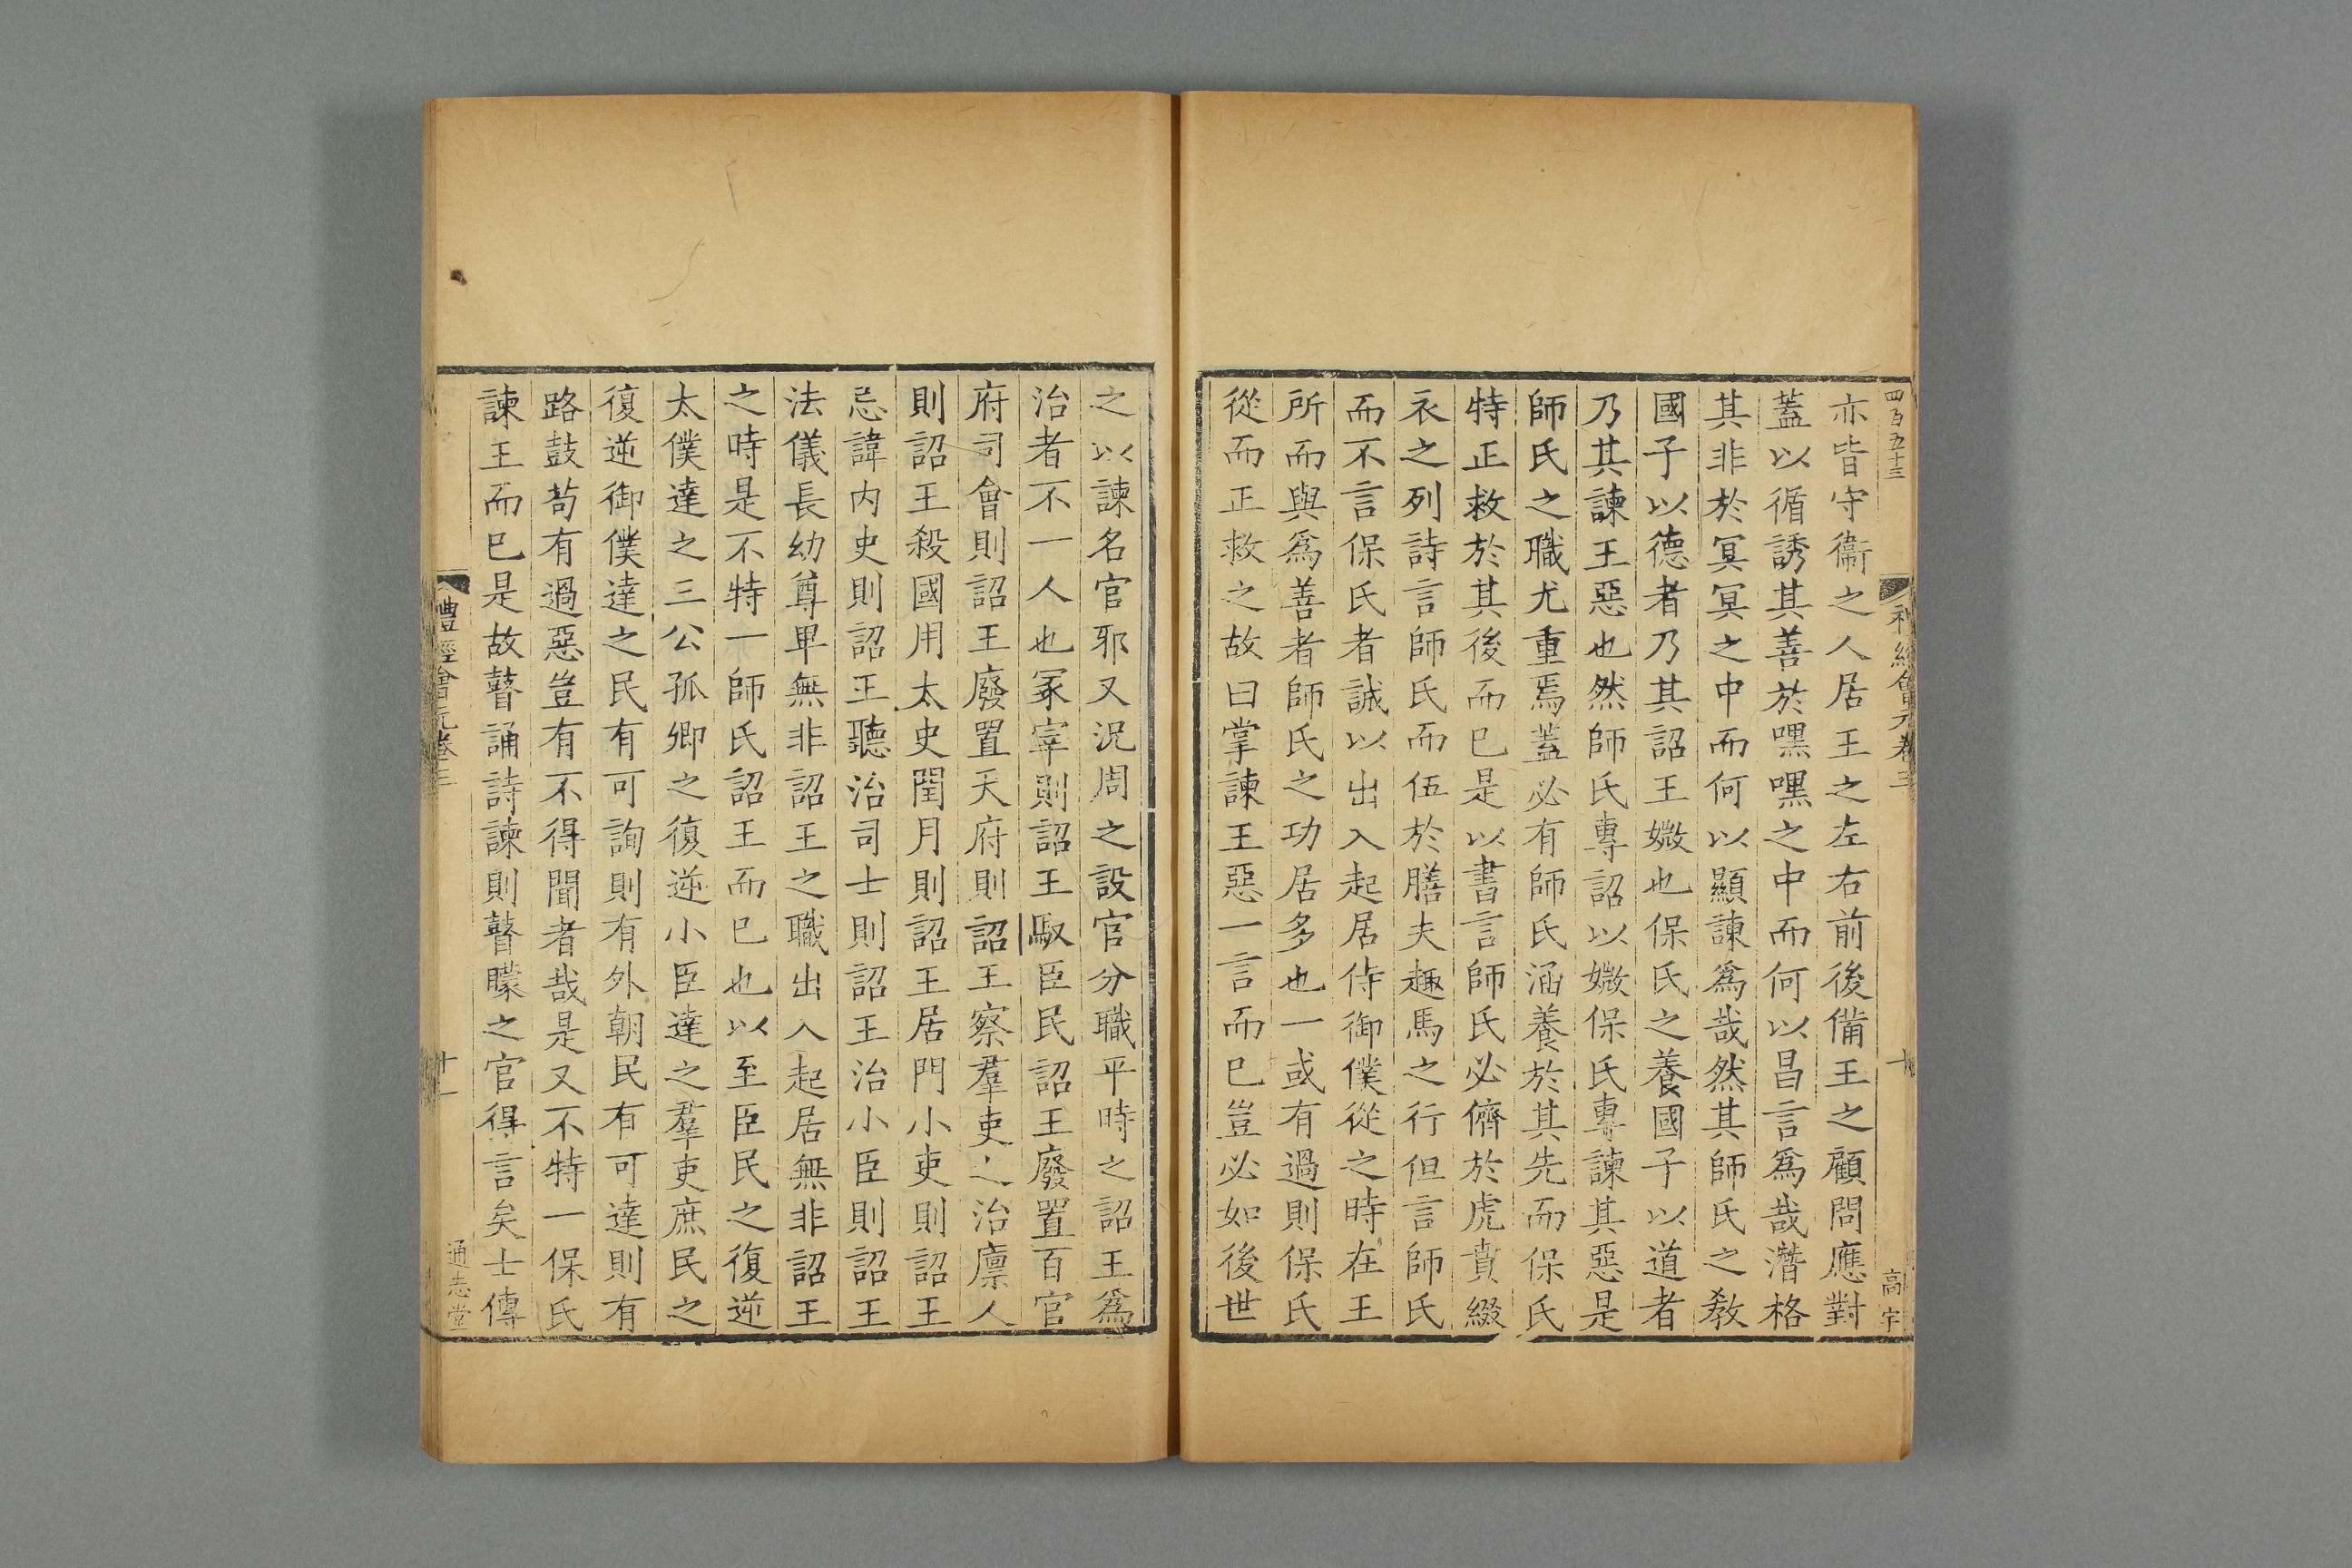 四百五十三
亦皆守衞之人居王之左右前後備王之顧問應對
蓋以循誘其善於嘿嘿之中而何以昌言爲哉潛格
其非於冥冥之中而何以顯諫爲哉然其師氏之教
國子以德者乃其詔王媺也保氏之養國子以道者
乃其諫王惡也然師氏專詔以媺保氏專諫其惡是
師氏之職尤重焉蓋必有師氏涵養於其先而保氏
特正救於其後而已是以書言師氏必儕於虎賁綴
衣之列詩言師氏而伍於膳夫趣馬之行但言師氏
而不言保氏者誠以出入起居侍御僕從之時在王
所而與爲善者師氏之功居多也一或有過則保氏
從而正救之故曰掌諫王惡一言而已豈必如後世
禮經會元卷三
十
高宇
之以諫名官邪又況周之設官分職平時之詔王爲
治者不一人也冢宰則詔王馭臣民詔王廢置百官
府司會則詔王廢置天府則詔王察羣吏之治廩人
則詔王殺國用太史閏月則詔王居門小吏則詔王
忌諱内史則詔王聽治司士則詔王治小臣則詔王
法儀長幼尊卑無非詔王之職出入起居無非詔王
之時是不特一師氏詔王而已也以至臣民之復逆
太僕達之三公孤卿之復逆小臣達之羣吏庶民之
復逆御僕達之民有可詢則有外朝民有可達則有
路鼓苟有過惡豈有不得聞者哉是又不特一保氏
諫王而已是故瞽誦詩諫則瞽矇之官得言矣士傳
禮經會元卷三
十一
通志堂